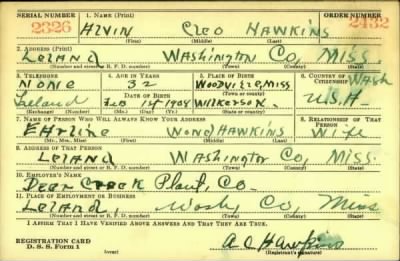 SERIAL NUMBER 1. NAME (Print) ORDER NUMBER
2326 ALVIN CLEO HAWKINS 2432
(First) (Middle) (Last)
2. ADDRESS (Print)
LELAND WASHINGTON CO, MISS.
(Number and street or R. F. D. number) (Town) (County) (State)
3. TELEPHONE 4. AGE IN YEARS 5. PLACE OF BIRTH 6. COUNTRY OF CITIZENSHIP
NONE 32 WOODVILLE MISS Wash
Leland DATE OF BIRTH
Feb 1st 1908 WILKERSON. U.S.A.
(Exchange) (Number) (Mo.) (Day) (Yr.) (State or country)
7. NAME OF PERSON WHO WILL ALWAYS KNOW YOUR ADDRESS 8. RELATIONSHIP OF THAT PERSON
EARline Wond HAWKINS Wife
(Mr., Mrs., Miss) (First) (Middle) (Last)
9. ADDRESS OF THAT PERSON
LELAND WASHINGTON CO, MISS.
(Number and street or R. F. D. number) (Town) (County) (State)
10. EMPLOYER'S NAME
Deer Creek Plant, Co.
11. PLACE OF EMPLOYMENT OR BUSINESS
Leland, Wash Co, Miss
(Number and street or R. F. D. number) (Town) (County) (State)
I AFFIRM THAT I HAVE VERIFIED ABOVE ANSWERS AND THAT THEY ARE TRUE.
REGISTRATION CARD
D. S. S. Form 1 A C Hawkins
(over) (Registrant's signature)